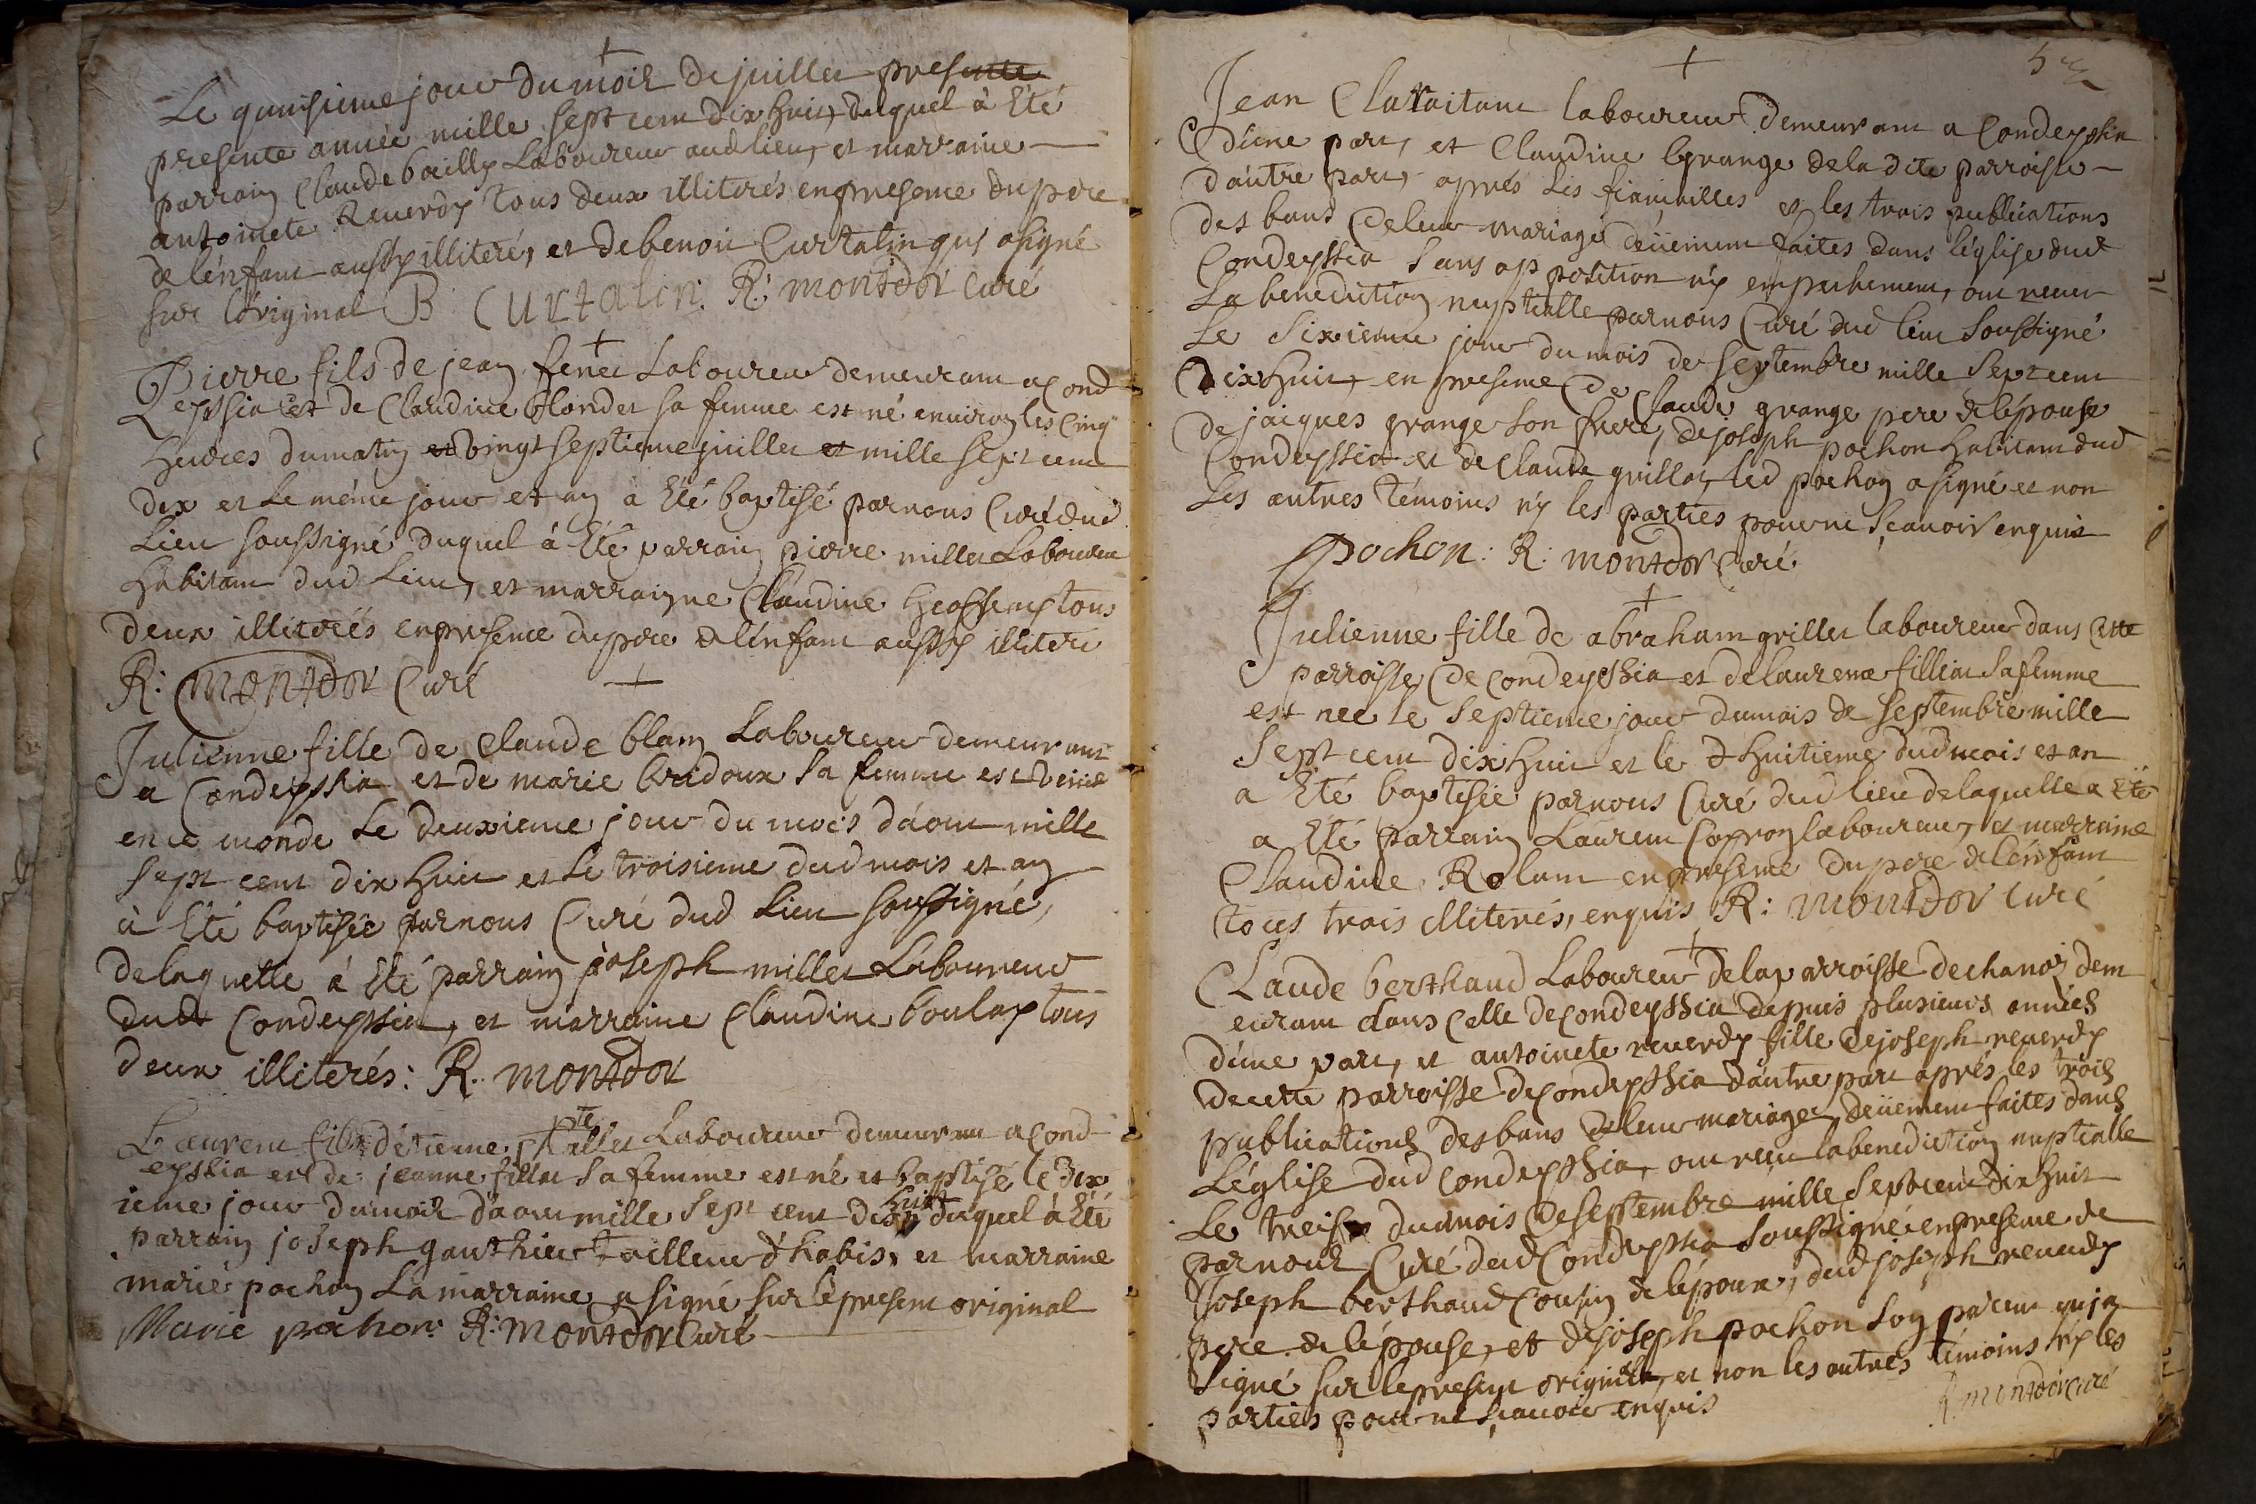 Le quinsieme jour du mois de juillet presente
presente année mille sept cent dix huit, duquel à Eté
parrain Claude bailly Laboureur aud lieu, et marraine
antoinete Reverdy tous deux illiterés en presence du pere
de lénfant aussy illiteré, et de benoit Curtalin qui a signé
sur lóriginal B Curtalin. R: montdor curé
Pierre fils de jean fenet Laboureur demeurant a Cond
eyssia et de Claudine blondet sa femme est né environ les cinq
heures du matin et vingt septieme juillet et mille sept cent
dix et le méme jour et an à Eté baptisé par nous Curé dud
Lieu soussigné duquel à Eté parrain pierre millet Laboureur
habitant dud Lieu, et marraigne Claudine tous
deux illiterés en presence du pere de lénfant aussy illiteré
R: montdor Curé
Julienne fille de Claude blanc Laboureur demeurant
a Condeyssia et de marie bridoux sa femme est venue
en ce monde le deuxieme jour du mois dáout mille
sept cent dix huit et le troisieme dud mois et an
à Eté baptisée par nous Curé dud Lieu soussigné,
de laquelle à Eté parrain joseph millet Laboureur
dudt Condeyssia, et marraine Claudine boulay tous
deux illiterés: R. montdor
Laurent fils détienne Laboureur demeurant a Cond
eyssia et de jeanne filliat sa femme est né et baptisé le dix
ieme jour du mois dáout mille sept cent dix huit duquel à Eté
parrain joseph gauthier tailleur d'habis, et marraine
marie pochon La marraine a signé sur le present original
Marie pochon R: montdor Curé
Jean Clavaitant laboureur demeurant a Condeyssia
dúne part, et Claudine grange de la dite parroisse
dáutre part, aprés les fiancailles et les trois publications
des bans de leur mariage deüement faites dans léglise dud
Condeyssia sans op position ny empechement, ont receu
La benediction nuptialle par nous Curé dud lieu soussigné
Le sixieme jour du mois de septembre mille sept cent
dix huit, en presence de Claude grange pere de lépouse
de jacques grange son frere, de joseph pochon habitant dud
Condeyssia et de Claude guillot, led pochon a signé et non
les autres témoins ny les parties pour ne sçavoir enquis
Pochon: R: montdor Curé
Julienne fille de abraham grillet laboureur dans cette
parroisse de condeyssia et de laurence filliat sa femme
est nee le septieme jour du mois de septembre mille
sept cent dix huit et le d huitieme dud mois et an
a Eté baptisée par nous Curé dud lieu de laquelle a Eté
a Eté parrain Laurent laboureur, et marraine
Claudine Rolant en presence du pere de lénfant
to us trois illiterés, enquis R: montdor curé
Claude berthaud Laboureur de la parroisse de chanoz dem
eurant dans celle de condeyssia depuis plusieurs années
dúne part, et antoinete reverdy fille de joseph reverdy
de cette parroisse de condeyssia dáutre part aprés les trois
publications des bans de leur mariage deüement faites dans
Léglise dud Condeyssia, ont receu la benediction nuptialle
Le treise du mois de septembre mille sept cent dix huit
par nous Curé dud Condeyssia soussigné en presence de
Joseph berthaud Cousin de lépoux, dud joseph reverdy
pere de lépouse, et de joseph pochon son parent qui a
signé sur le present original, et non les autres témoins ny les
parties pour ne sçavoir enquis R. montdor curé